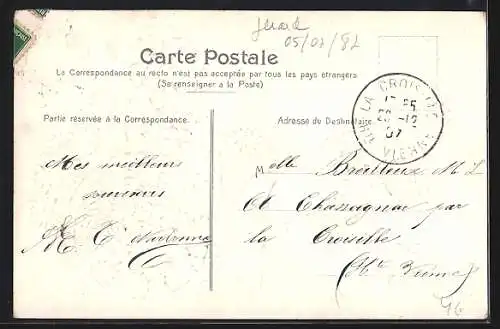 Gérard
05/07/82
Carte Postale
La Correspondance au recto n'est pas acceptée par tous les pays étrangers
(Se renseigner à la Poste)
LA CROISILLE
20 -12
07
VIENNE
Partie réservée à la Correspondance.
Adresse du Destinataire
Mes meilleurs
souvenirs
Melle M L
A Chassagnas par
la Croisille
(Hte Vienne)